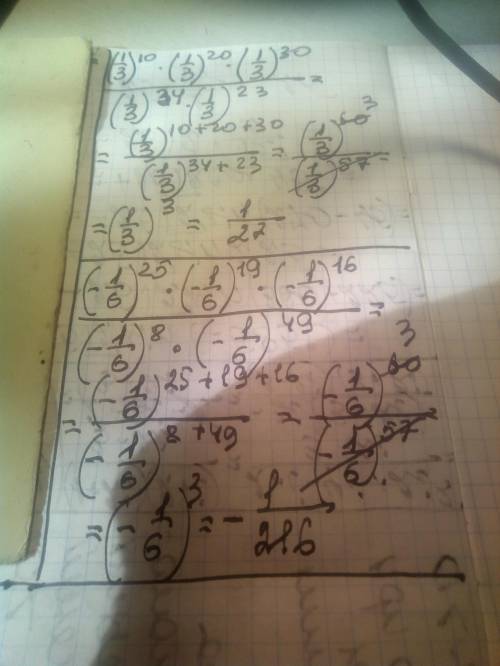 = (1/3)^10 · (1/3)^20 · (1/3)^30 / (1/3)^34 · (1/3)^23 =
= (1/3)^10+20+30 / (1/3)^34+23 = (1/3)^60 3 / (1/3)^57
= (1/3)^3 = 1/27
(-1/6)^25 · (-1/6)^19 · (-1/6)^16 / (-1/6)^8 · (-1/6)^49 =
= (-1/6)^25+19+16 / (-1/6)^8+49 = (-1/6)^60 3 / (-1/6)^57
= (-1/6)^3 = -1/216